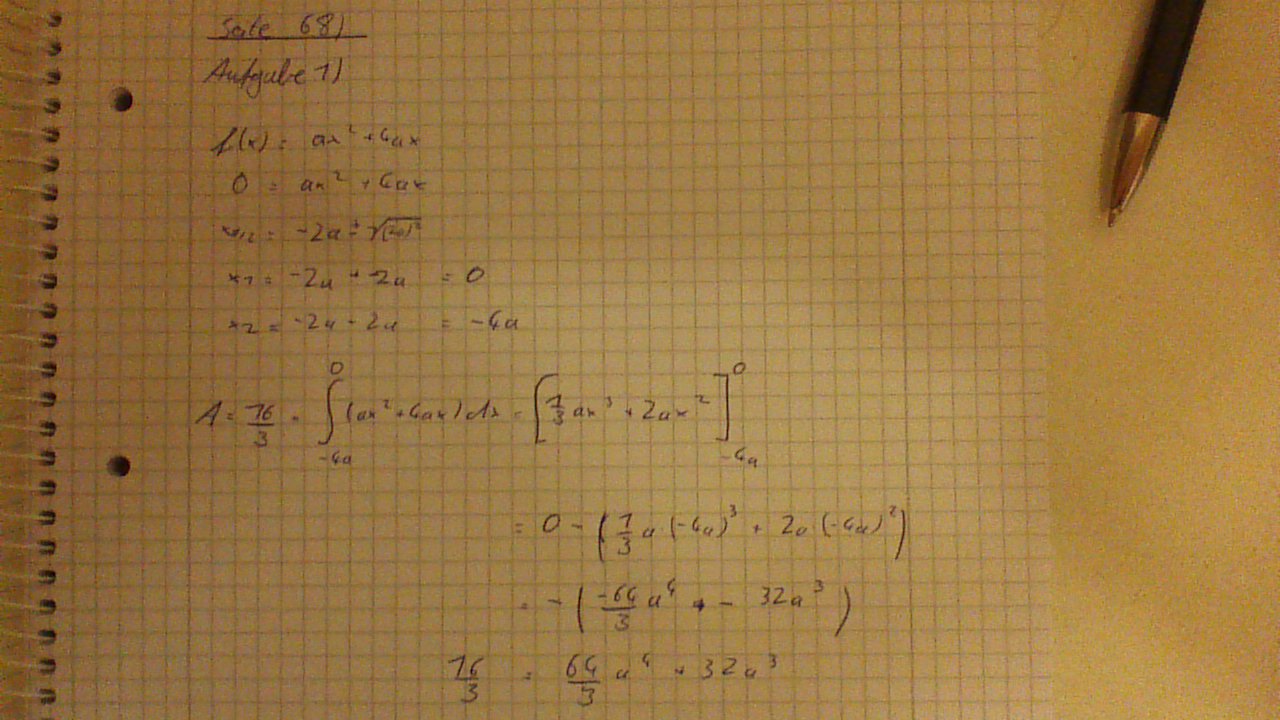 Seite 68)
Aufgabe 1)
f(x) = ax² + 4ax
0 = ax² + 4ax
x₁,₂ = -2a ± √(2a)²
x₁ = -2a + 2a = 0
x₂ = -2a - 2a = -4a
A = 16/3 = ∫₋₄ₐ⁰ (ax² + 4ax) dx = [1/3 ax³ + 2ax²]₋₄ₐ⁰
= 0 - (1/3 a (-4a)³ + 2a (-4a)²)
= - (-64/3 a⁴ - 32a³)
16/3 = 64/3 a⁴ + 32a³